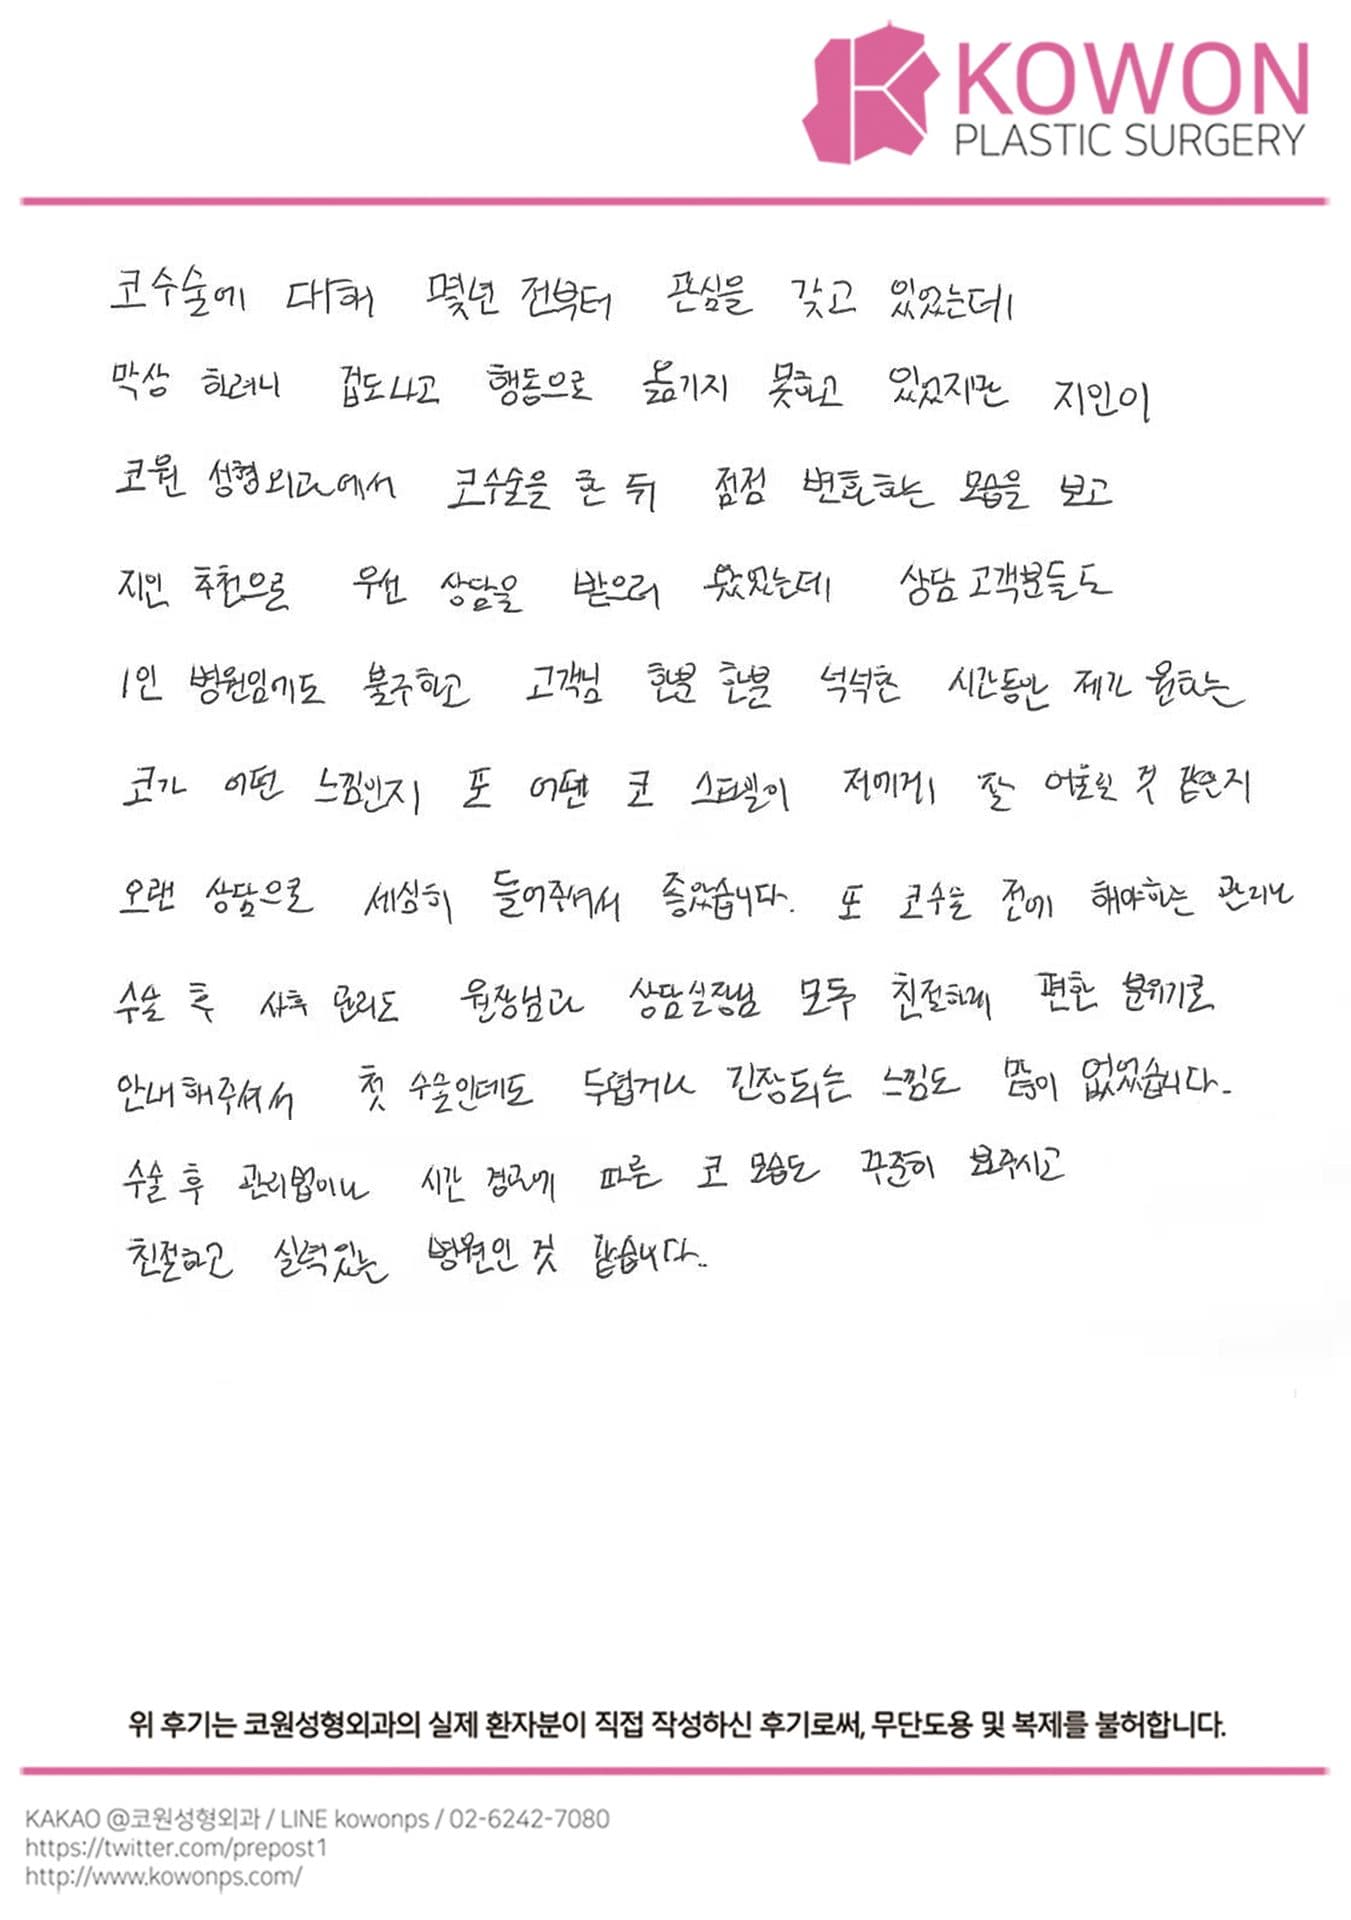 KOWON
PLASTIC SURGERY
코수술에 대해 몇년 전부터 관심을 갖고 있었는데
막상 하려니 겁도나고 행동으로 옮기지 못하고 있었지만 지인이
코원 성형외과에서 코수술을 한 뒤 점점 변화하는 모습을 보고
지인 추천으로 우선 상담을 받으러 왔었는데 상담 고객분들도
1인 병원임에도 불구하고 고객님 한분 한분 넉넉한 시간동안 제가 원하는
코가 어떤 느낌인지 또 어떤 코 스타일이 저에게 잘 어울릴 것 같은지
오랜 상담으로 세심히 들어주셔서 좋았습니다. 또 코수술 전에 해야하는 관리나
수술 후 사후 관리도 원장님과 상담실장님 모두 친절하게 편한 분위기로
안내해주셔서 첫 수술인데도 두렵거나 긴장되는 느낌도 많이 없었습니다.
수술 후 관리법이나 시간 경과에 따른 코 모습도 꾸준히 봐주시고
친절하고 실력있는 병원인 것 같습니다..
위 후기는 코원성형외과의 실제 환자분이 직접 작성하신 후기로써, 무단도용 및 복제를 불허합니다.
KAKAO @코원성형외과 / LINE kowonps / 02-6242-7080
https://twitter.com/prepost1
http://www.kowonps.com/